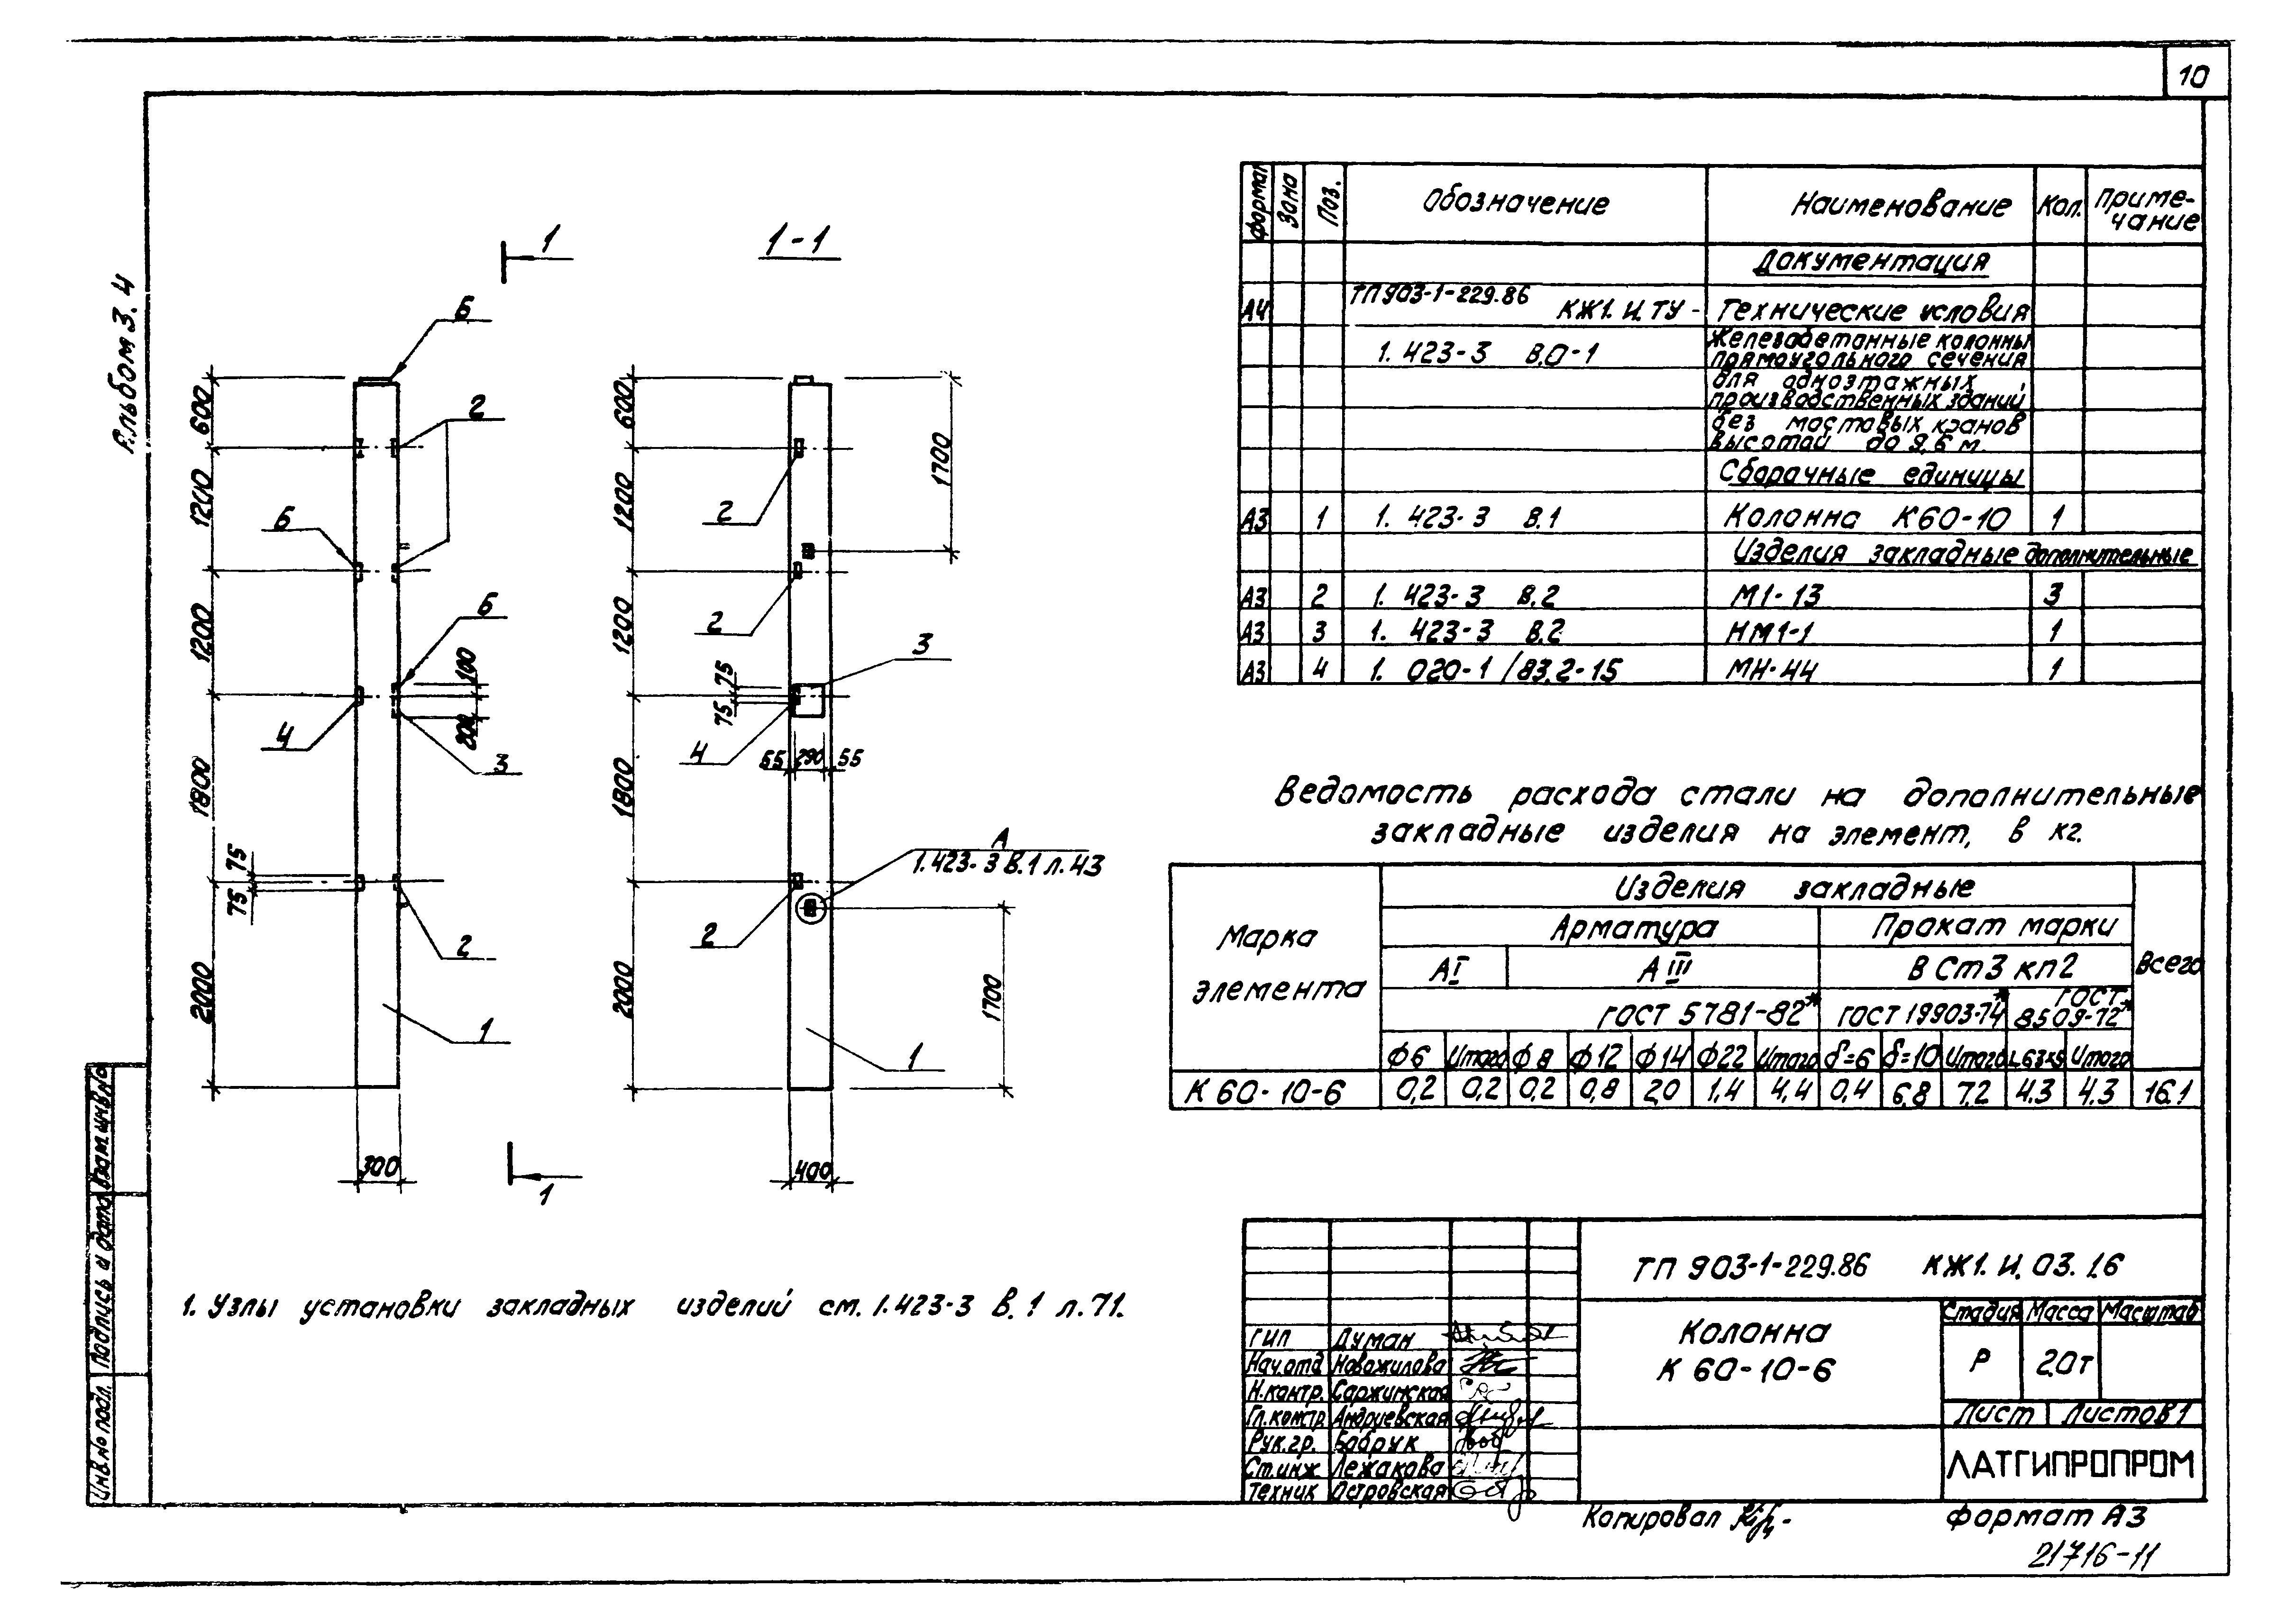 10
Альбом 3.4
1
1-1
Б
600
2
1200
Б
1200
Б
100
200
4
3
1800
75
75
2
2000
1
300
1
600
1700
2
1200
2
1200
3
75
75
4
55 290 55
1800
А
1.423-3 В.1 л.43
2
2000
1700
1
400
1. Узлы установки закладных изделий см. 1.423-3 В.1 л.71.
Формат Зона Поз. Обозначение Наименование Кол. Приме-
чание
Документация
А4 ТП903-1-229.86 КЖ1.И.ТУ - Технические условия
1.423-3 В.0-1 Железобетонные колонны
прямоугольного сечения
для одноэтажных
производственных зданий
без мостовых кранов
высотой до 9,6 м.
Сборочные единицы
А3 1 1.423-3 В.1 Колонна К60-10 1
Изделия закладные дополнительные
А3 2 1.423-3 В.2 М1-13 3
А3 3 1.423-3 В.2 НМ1-1 1
А3 4 1.020-1/83.2-15 МН-44 1
Ведомость расхода стали на дополнительные
закладные изделия на элемент, в кг.
Марка
элемента
Изделия закладные
Всего
Арматура Прокат марки
АI АIII ВСт3кп2
ГОСТ 5781-82* ГОСТ 19903-74* ГОСТ
8509-72*
Ф6 Итого Ф8 Ф12 Ф14 Ф22 Итого δ=6 δ=10 Итого L63×5 Итого
К 60-10-6 0,2 0,2 0,2 0,8 2,0 1,4 4,4 0,4 6,8 7,2 4.3 4.3 16.1
ТП 903-1-229.86 КЖ1.И.03.1.6
Колонна
К 60-10-6
Стадия Масса Масштаб
Р 2.0т
Лист Листов 1
ЛАТГИПРОПРОМ
ГИП Думан
Нач.отд Новожилова
Н.контр. Саржинская
Гл.констр. Андриевская
Рук.гр. Бобрук
Ст.инж. Лежакова
Техник Островская
Копировал
Формат А3
21716-11
Инв.№ подл. Подпись и дата Взам.инв.№